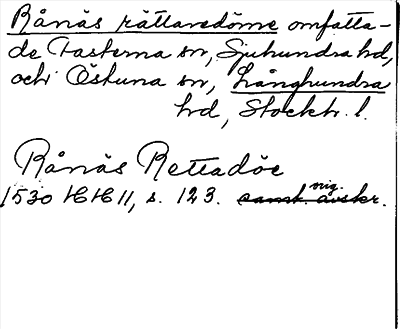 Rånäs rättaredöme omfatta-
de Fasterna sn, Sjuhundra hd,
och Östuna sn, Långhundra
hd, Stockh. l.
Rånäs Rettadöe
1530 HH 11, s. 123. samt. avskr.
orig.